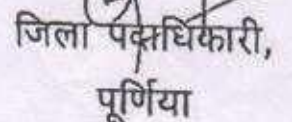 जिला पदाधिकारी,
पूर्णिया